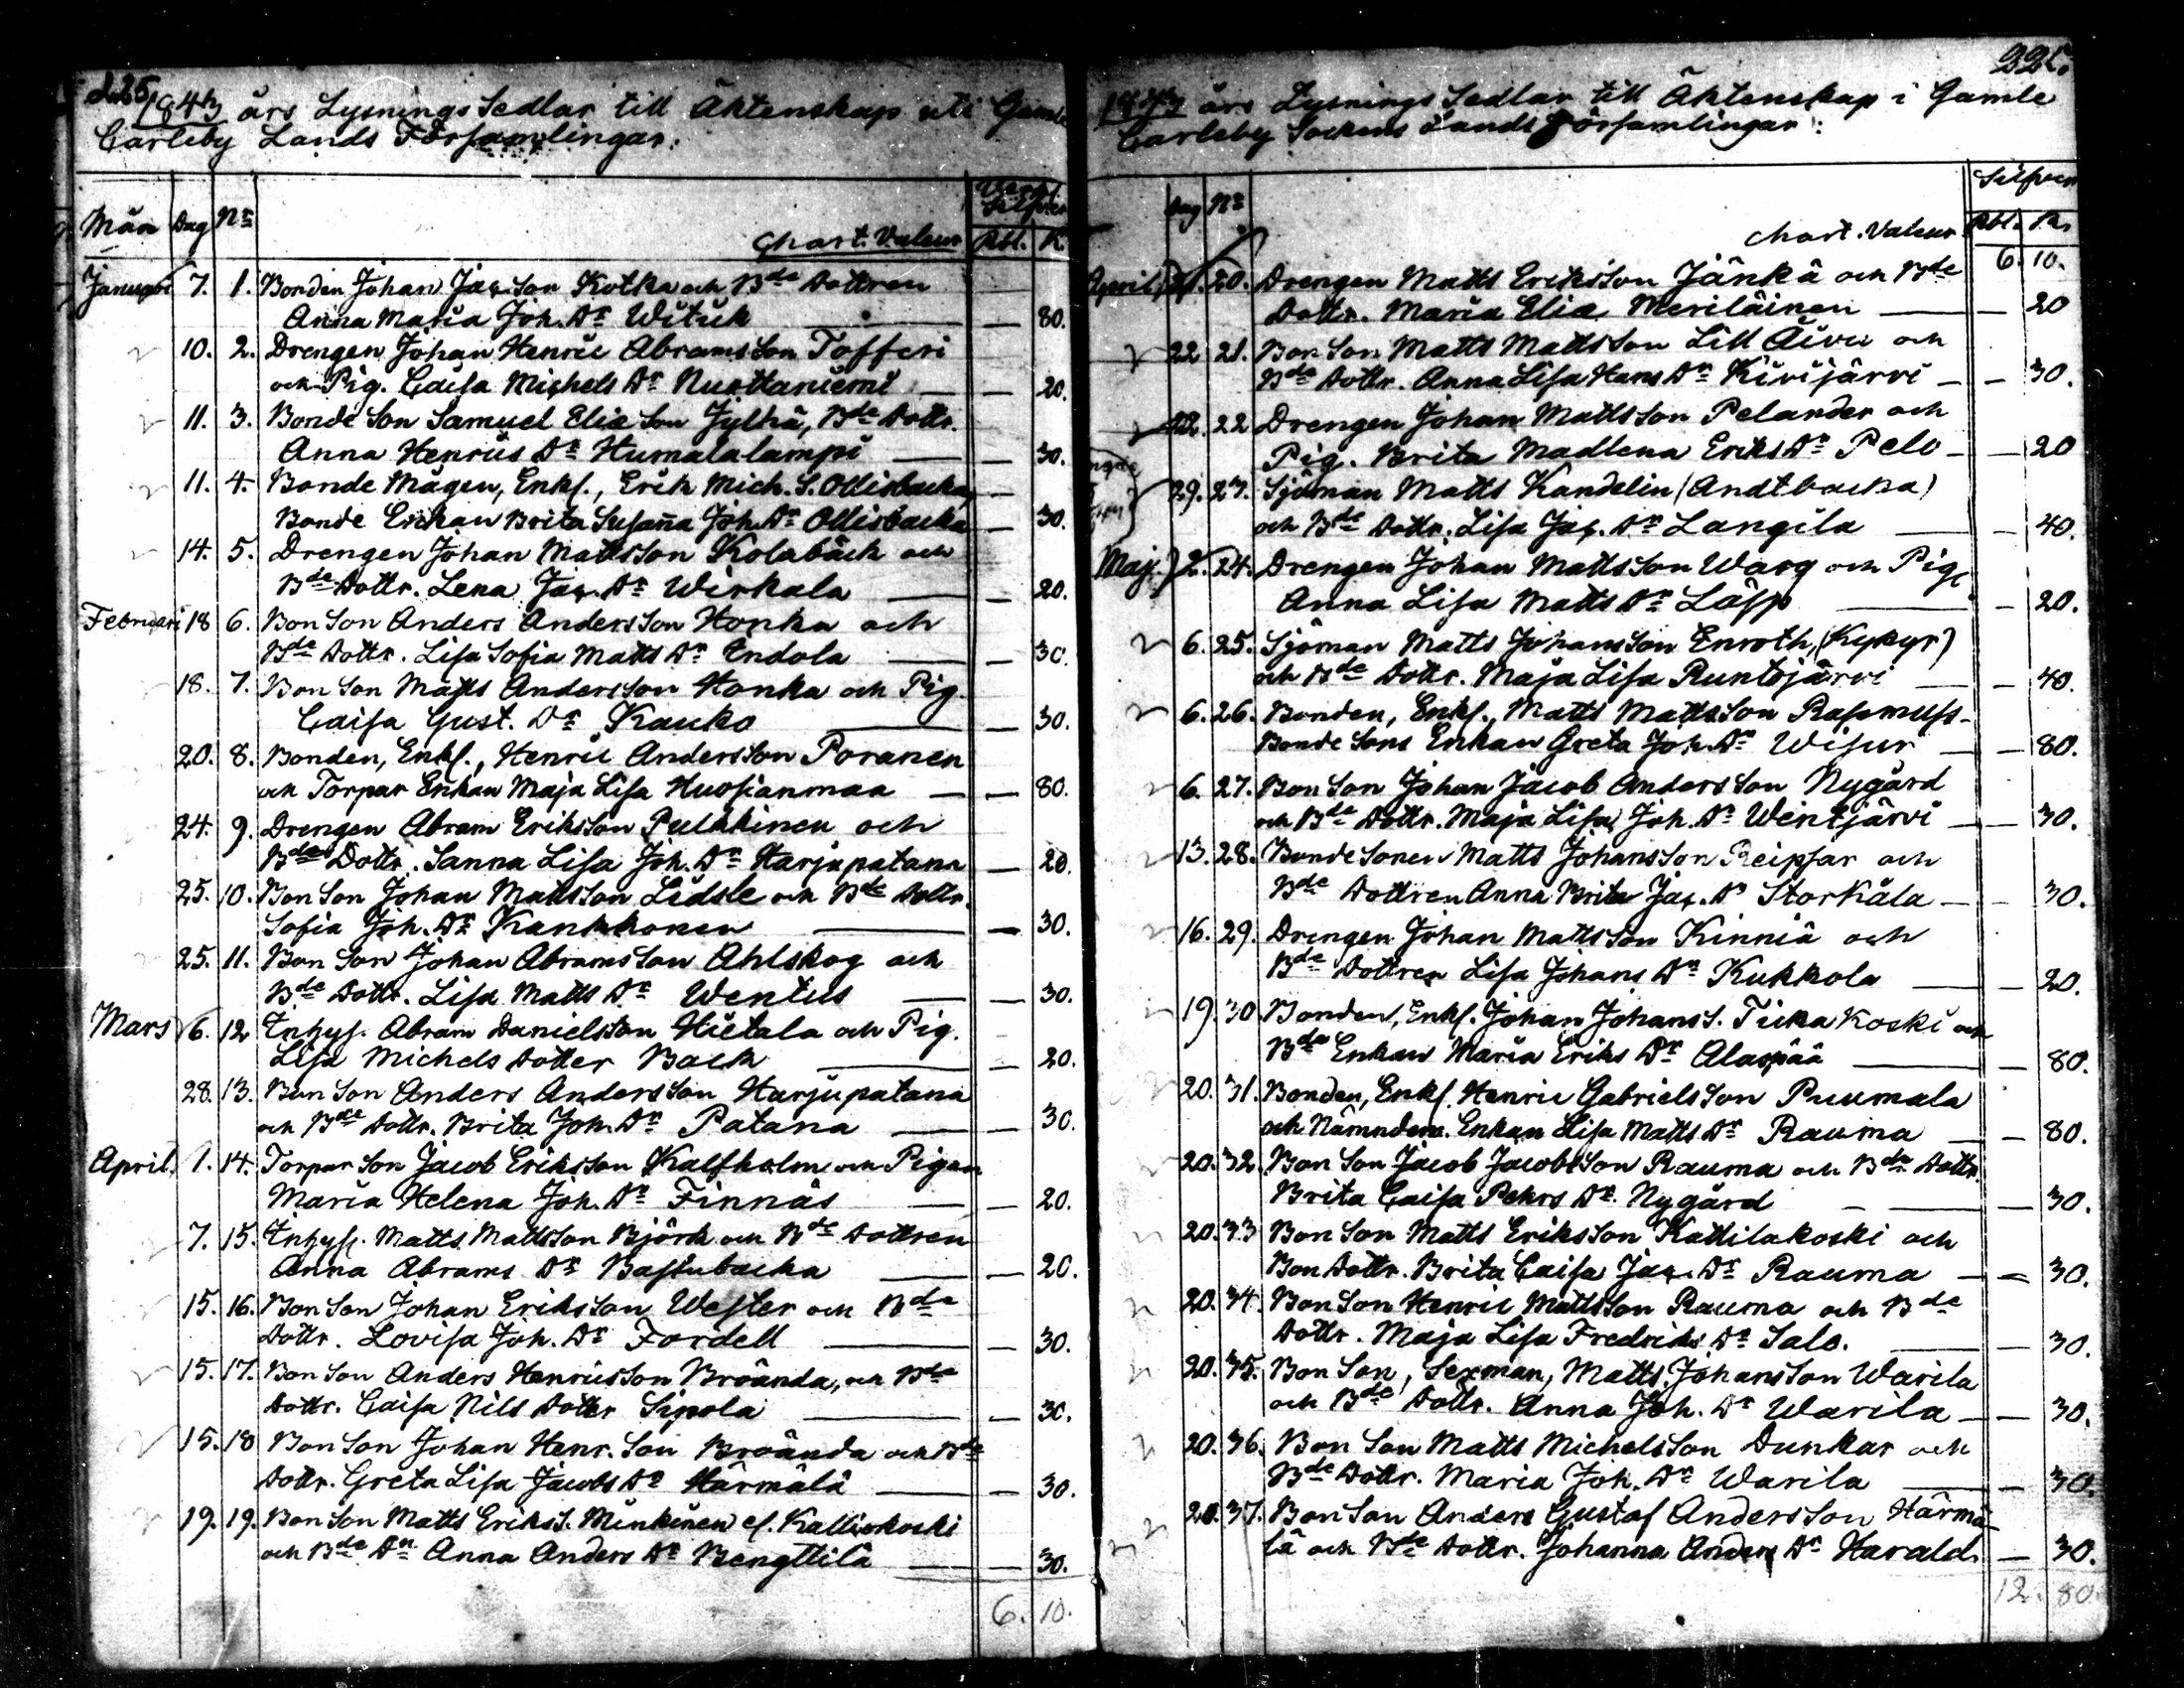 225
1843 års Lysnings Sedlar till Äktenskap uti Gamle
Carleby Lands Församlingar:
Silfver
Mån Dag No
Chart. Valeur Rbl. K.
Januari 7. 1. Bonden Johan Jac. Son Kotka och Bde Dottren
Anna Maria Joh. Dr Witick — 80.
10. 2. Drengen Johan Henric Abramsson Tofferi
och Pig. Caisa Michels Dr Nuottaniemi — 20.
11. 3. Bonde Son Samuel Elie Son Jylhä, Bde Dottr.
Anna Henrics Dr Humalalampi — 30.
11. 4. Bonde Mågen, Enkl., Erik Mich. S. Ollisbacka,
Bonde Enkan Brita Susanna Joh. Dr Ollisbacka — 30.
14. 5. Drengen Johan Mattsson Kolabäck och
Bde Dottr. Lena Jac. Dr Wirkala — 20.
Februari 18 6. Bon Son Anders Andersson Honka och
Bde Dottr. Lisa Sofia Matts Dr Endola — 30.
18. 7. Bon Son Matts Andersson Honka och Pig.
Caisa Gust. Dr Kauko — 30.
20. 8. Bonden, Enkl., Henric Andersson Poranen
och Torpar Enkan Maja Lisa Huosianmaa — 80.
24. 9. Drengen Abram Eriksson Pulkkinen och
Bde Dottr. Sanna Lisa Joh. Dr Harjupatana — 20.
25. 10. Bon Son Johan Mattsson Lidsle och Bde Dottr.
Sofia Joh. Dr Kankkonen — 30.
25. 11. Bon Son Johan Abramsson Ahlskog och
Bde Dottr. Lisa Matts Dr Wentus — 30.
Mars 6. 12 Inhys. Abram Danielsson Hietala och Pig.
Lisa Michels Dotter Back — 20.
28. 13. Bon Son Anders Andersson Harjupatana
och Bde Dottr. Brita Joh. Dr Patana — 30.
April. 1. 14. Torpar Son Jacob Eriksson Kalfholm och Pigan
Maria Helena Joh. Dr Finnäs — 20.
7. 15. Inhys. Matts Mattsson Björk och Bde Dottren
Anna Abrams Dr Bastubacka — 20.
15. 16. Bon Son Johan Eriksson Wester och Bde
Dottr. Lovisa Joh. Dr Fordell — 30.
15. 17. Bon Son Anders Henricsson Broända, och Bde
Dottr. Caisa Nils Dotter Sipola — 30.
15. 18 Bon Son Johan Henr. Son Broända och Bde
Dottr. Greta Lisa Jacobs Dr Härmälä — 30.
19. 19. Bon Son Matts Eriks S. Minkinen el. Kalliokoski
och Bde Dr Anna Anders Dr Bengttilä — 30.
6. 10.
1843 års Lysnings Sedlar till Äktenskap i Gamle
Carleby Sockens Lands Församlingar:
Silfver
Dag No
Chart. Valeur Rbl. K.
6. 10.
April 21. 20. Drengen Matts Eriksson Jänkä och Bde
Dottr. Maria Elia Meriläinen — 20
22 21. Bon Son Matts Mattsson Lill Äivu och
Bde Dottr. Anna Lisa Hans Dr Kivijärvi — 30.
22. 22 Drengen Johan Mattsson Pelander och
Pig. Brita Madlena Eriks Dr Pelo — 20
29. 23. Sjöman Matts Kandelin (Andtbacka)
och Bde Dottr. Lisa Jac. Dr Langila — 40.
Maj. 2. 24. Drengen Johan Mattsson Warg och Pig.
Anna Lisa Matts Dr Läspp — 20.
6. 25. Sjöman Matts Johansson Enroth, (Kykyr)
och Bde Dottr. Maja Lisa Runtojärvi — 40.
6. 26. Bonden, Enkl., Matts Mattsson Rasmuss-
Bonde Sons Enkan Greta Joh. Dr Wisur — 80.
6. 27. Bon Son Johan Jacob Andersson Nygård
och Bde Dottr. Maja Lisa Joh. Dr Wentjärvi — 30.
13. 28. Bonde Sonen Matts Johansson Reipsar och
Bde Dottren Anna Brita Jac. Dr Storkåla — 30.
16. 29. Drengen Johan Mattsson Kinniä och
Bde Dottren Lisa Johans Dr Kukkola — 20.
19. 30 Bonden, Enkl. Johan Johans S. Tiikakoski och
Bde Enkan Maria Eriks Dr Alaspää — 80.
20. 31. Bonden, Enkl. Henric Gabrielsson Puumala
och Nämndem. Enkan Lisa Matts Dr Rauma — 80.
20. 32. Bon Son Jacob Jacobsson Rauma och Bde Dottr.
Brita Caisa Pehrs Dr Nygård — 30.
20. 33 Bon Son Matts Eriksson Kattilakoski och
Bon Dottr. Brita Caisa Jac. Dr Rauma — 30.
20. 34. Bon Son Henric Mattsson Rauma och Bde
Dottr. Maja Lisa Fredriks Dr Salo. — 30.
20. 35. Bon Son, Sexman, Matts Johansson Warila
och Bde Dottr. Anna Joh. Dr Warila — 30.
20. 36. Bon Son Matts Michelsson Dunkar och
Bde Dottr. Maria Joh. Dr Warila — 30.
20. 37. Bon Son Anders Gustaf Andersson Härmä-
lä och Bde Dottr. Johanna Anders Dr Harald — 30.
12. 80